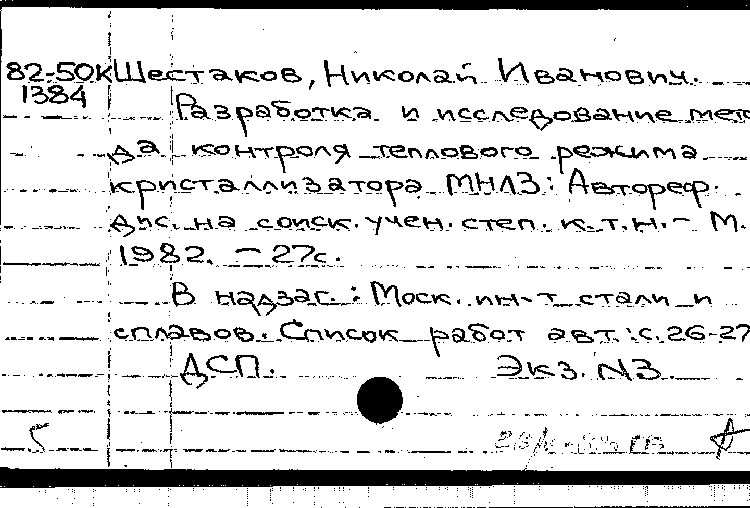 82-50К Шестаков, Николай Иванович.
1384
Разработка и исследование мето
да контроля теплового режима
кристаллизатора МНЛЗ: Автореф.
дис. на соиск. учен. степ. к.т.н. - М.
1982. - 27с.
В надзаг.: Моск. ин-т стали и
сплавов. Список работ авт.: с. 26-27
ДСП. Экз. N3.
5